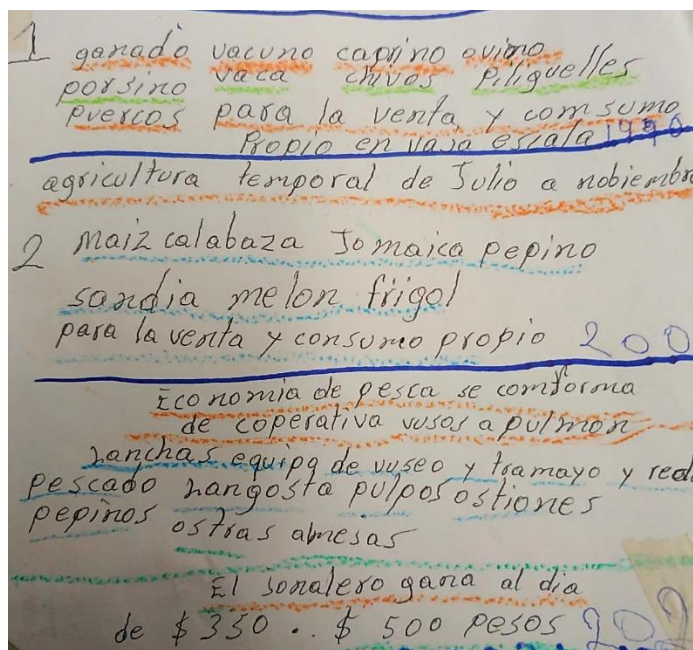 1 ganado vacuno caprino ovino
porsino vaca chivos Piliguelles
Puercos para la venta y comsumo
Propio en vaja escala 1990
agricultura temporal de Julio a nobiembre
2 Maiz calabaza Jomaica pepino
sandia melon frigol
para la venta y consumo propio 200
Economia de pesca se comforma
de coperativa vusos a pulmon
Lanchas equipo de vuseo y tramayo y red
pescado Langosta pulpos ostiones
pepinos ostras almesas
El Jornalero gana al dia
de $ 350 .. $ 500 pesos 202